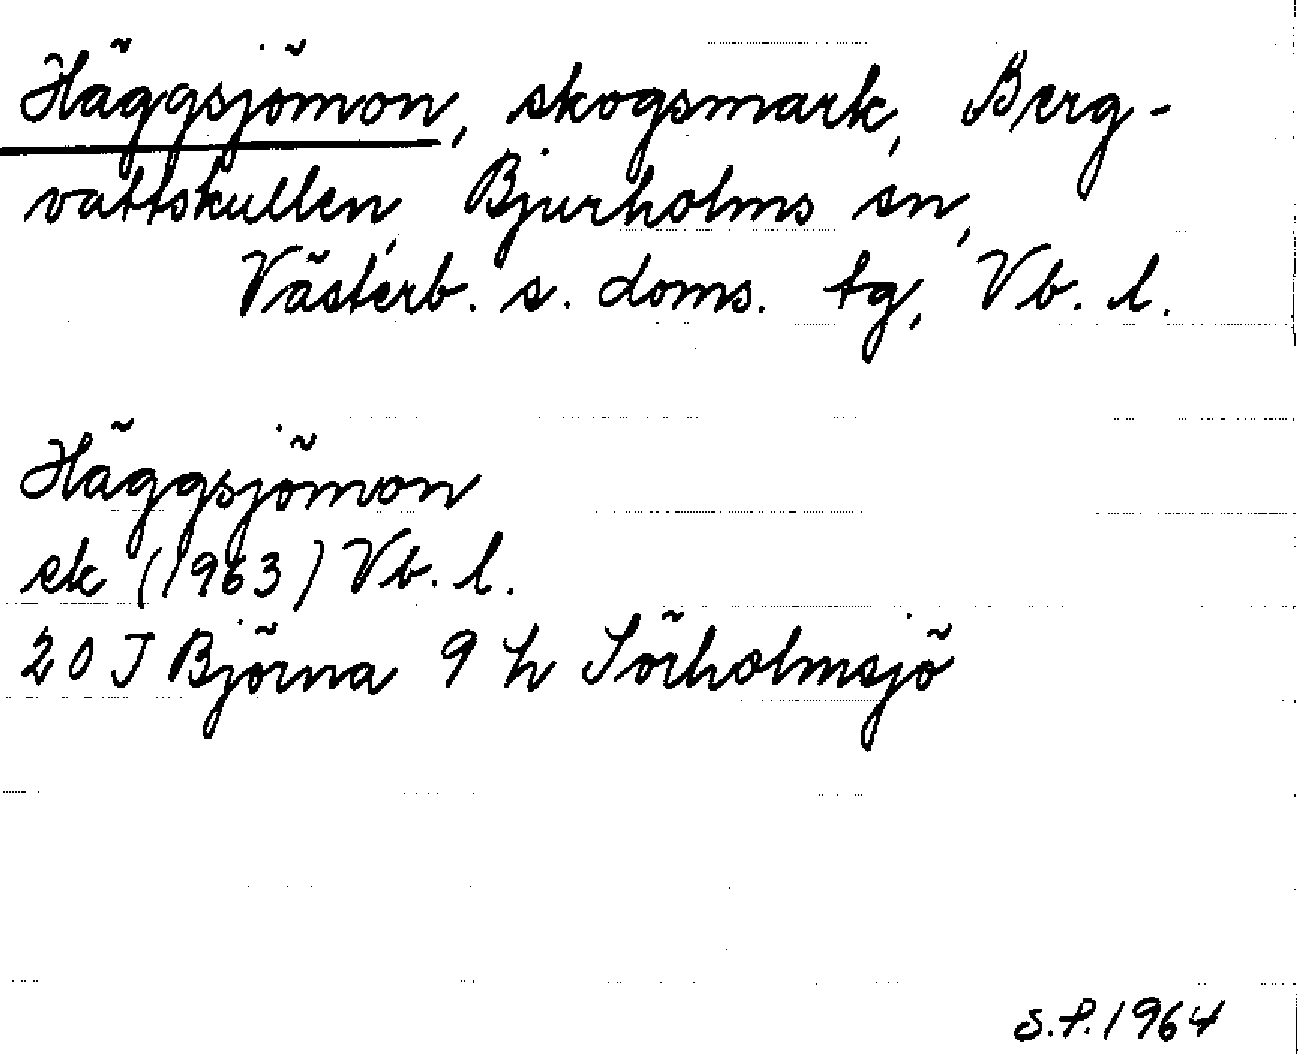 Häggsjömon, skogsmark, Berg-
vattskullen, Bjurholms sn,
Västerb. s. doms. tg, Vb. l.
Häggsjömon
ek (1963) Vb. l.
20 J Björna 9 h Sörholmsjö
S.P. 1964